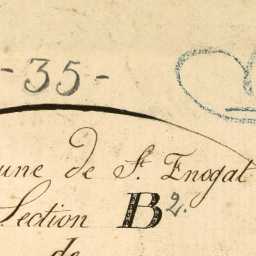 - 35 -
une de St Enogat
Section B 2.
de